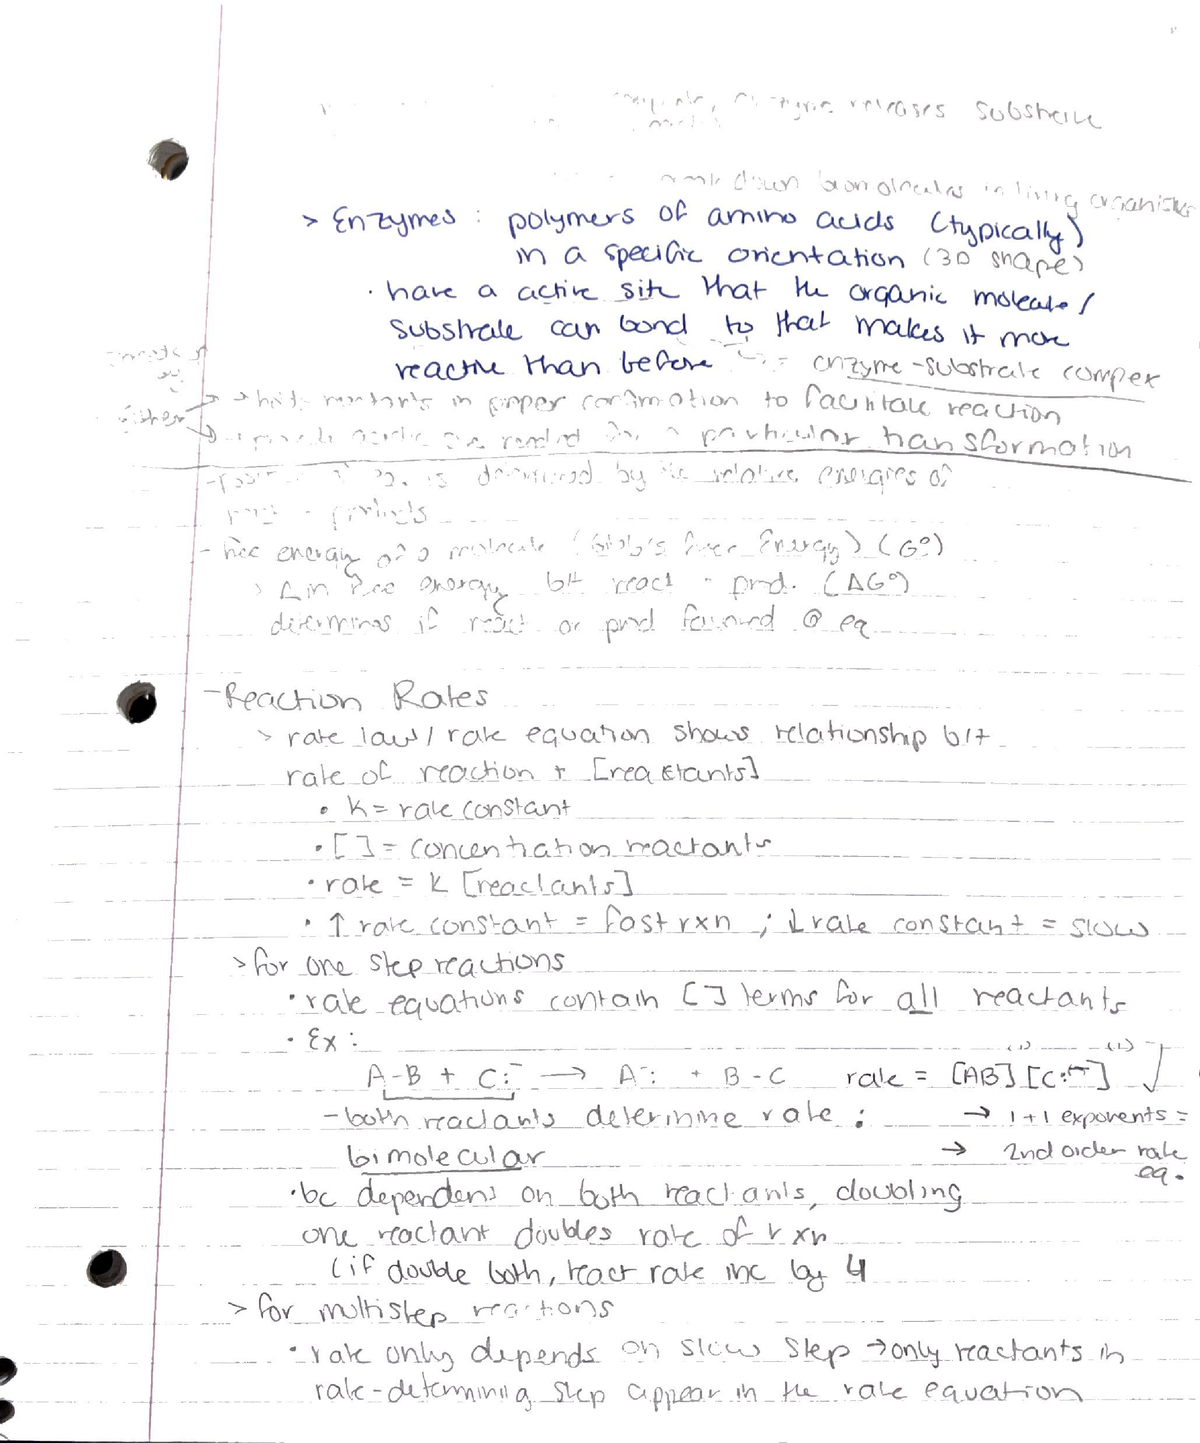 enzyme releases substrate
down biomolecules in living organisms
> Enzymes : polymers of amino acids (typically)
in a specific orientation (3D shape)
· have a active site that the organic molecule/
substrate can bond to that makes it more
reactive than before = enzyme-substrate compex
either → holds reactants in proper confirmation to facilitate reaction
→ needed for a particular transformation
- is determined by the relative energies of
- free energy of a molecule (Gibb's Free Energy) (G°)
> Δ in free energy b/t react + prod. (ΔG°)
determines if react or prod favored @ eq
- Reaction Rates
> rate law / rate equation shows relationship b/t
rate of reaction + [reactants]
• K = rate constant
• [ ] = concentration reactants
• rate = K [reactants]
• ↑ rate constant = fast rxn ; ↓ rate constant = slow
> for one step reactions
• rate equations contain [ ] terms for all reactants
• Ex :
A-B + C:⁻ → A⁻: + B-C rate = [AB] [C:⁻]
(1) (1)
- both reactants determine rate : → 1+1 exponents =
bimolecular → 2nd order rate
eq.
• bc dependens on both reactants, doubling
one reactant doubles rate of rxn
(if double both, react rate inc by 4
> for multistep reactions
• rate only depends on slow step → only reactants in
rate-determining step appear in the rate equation